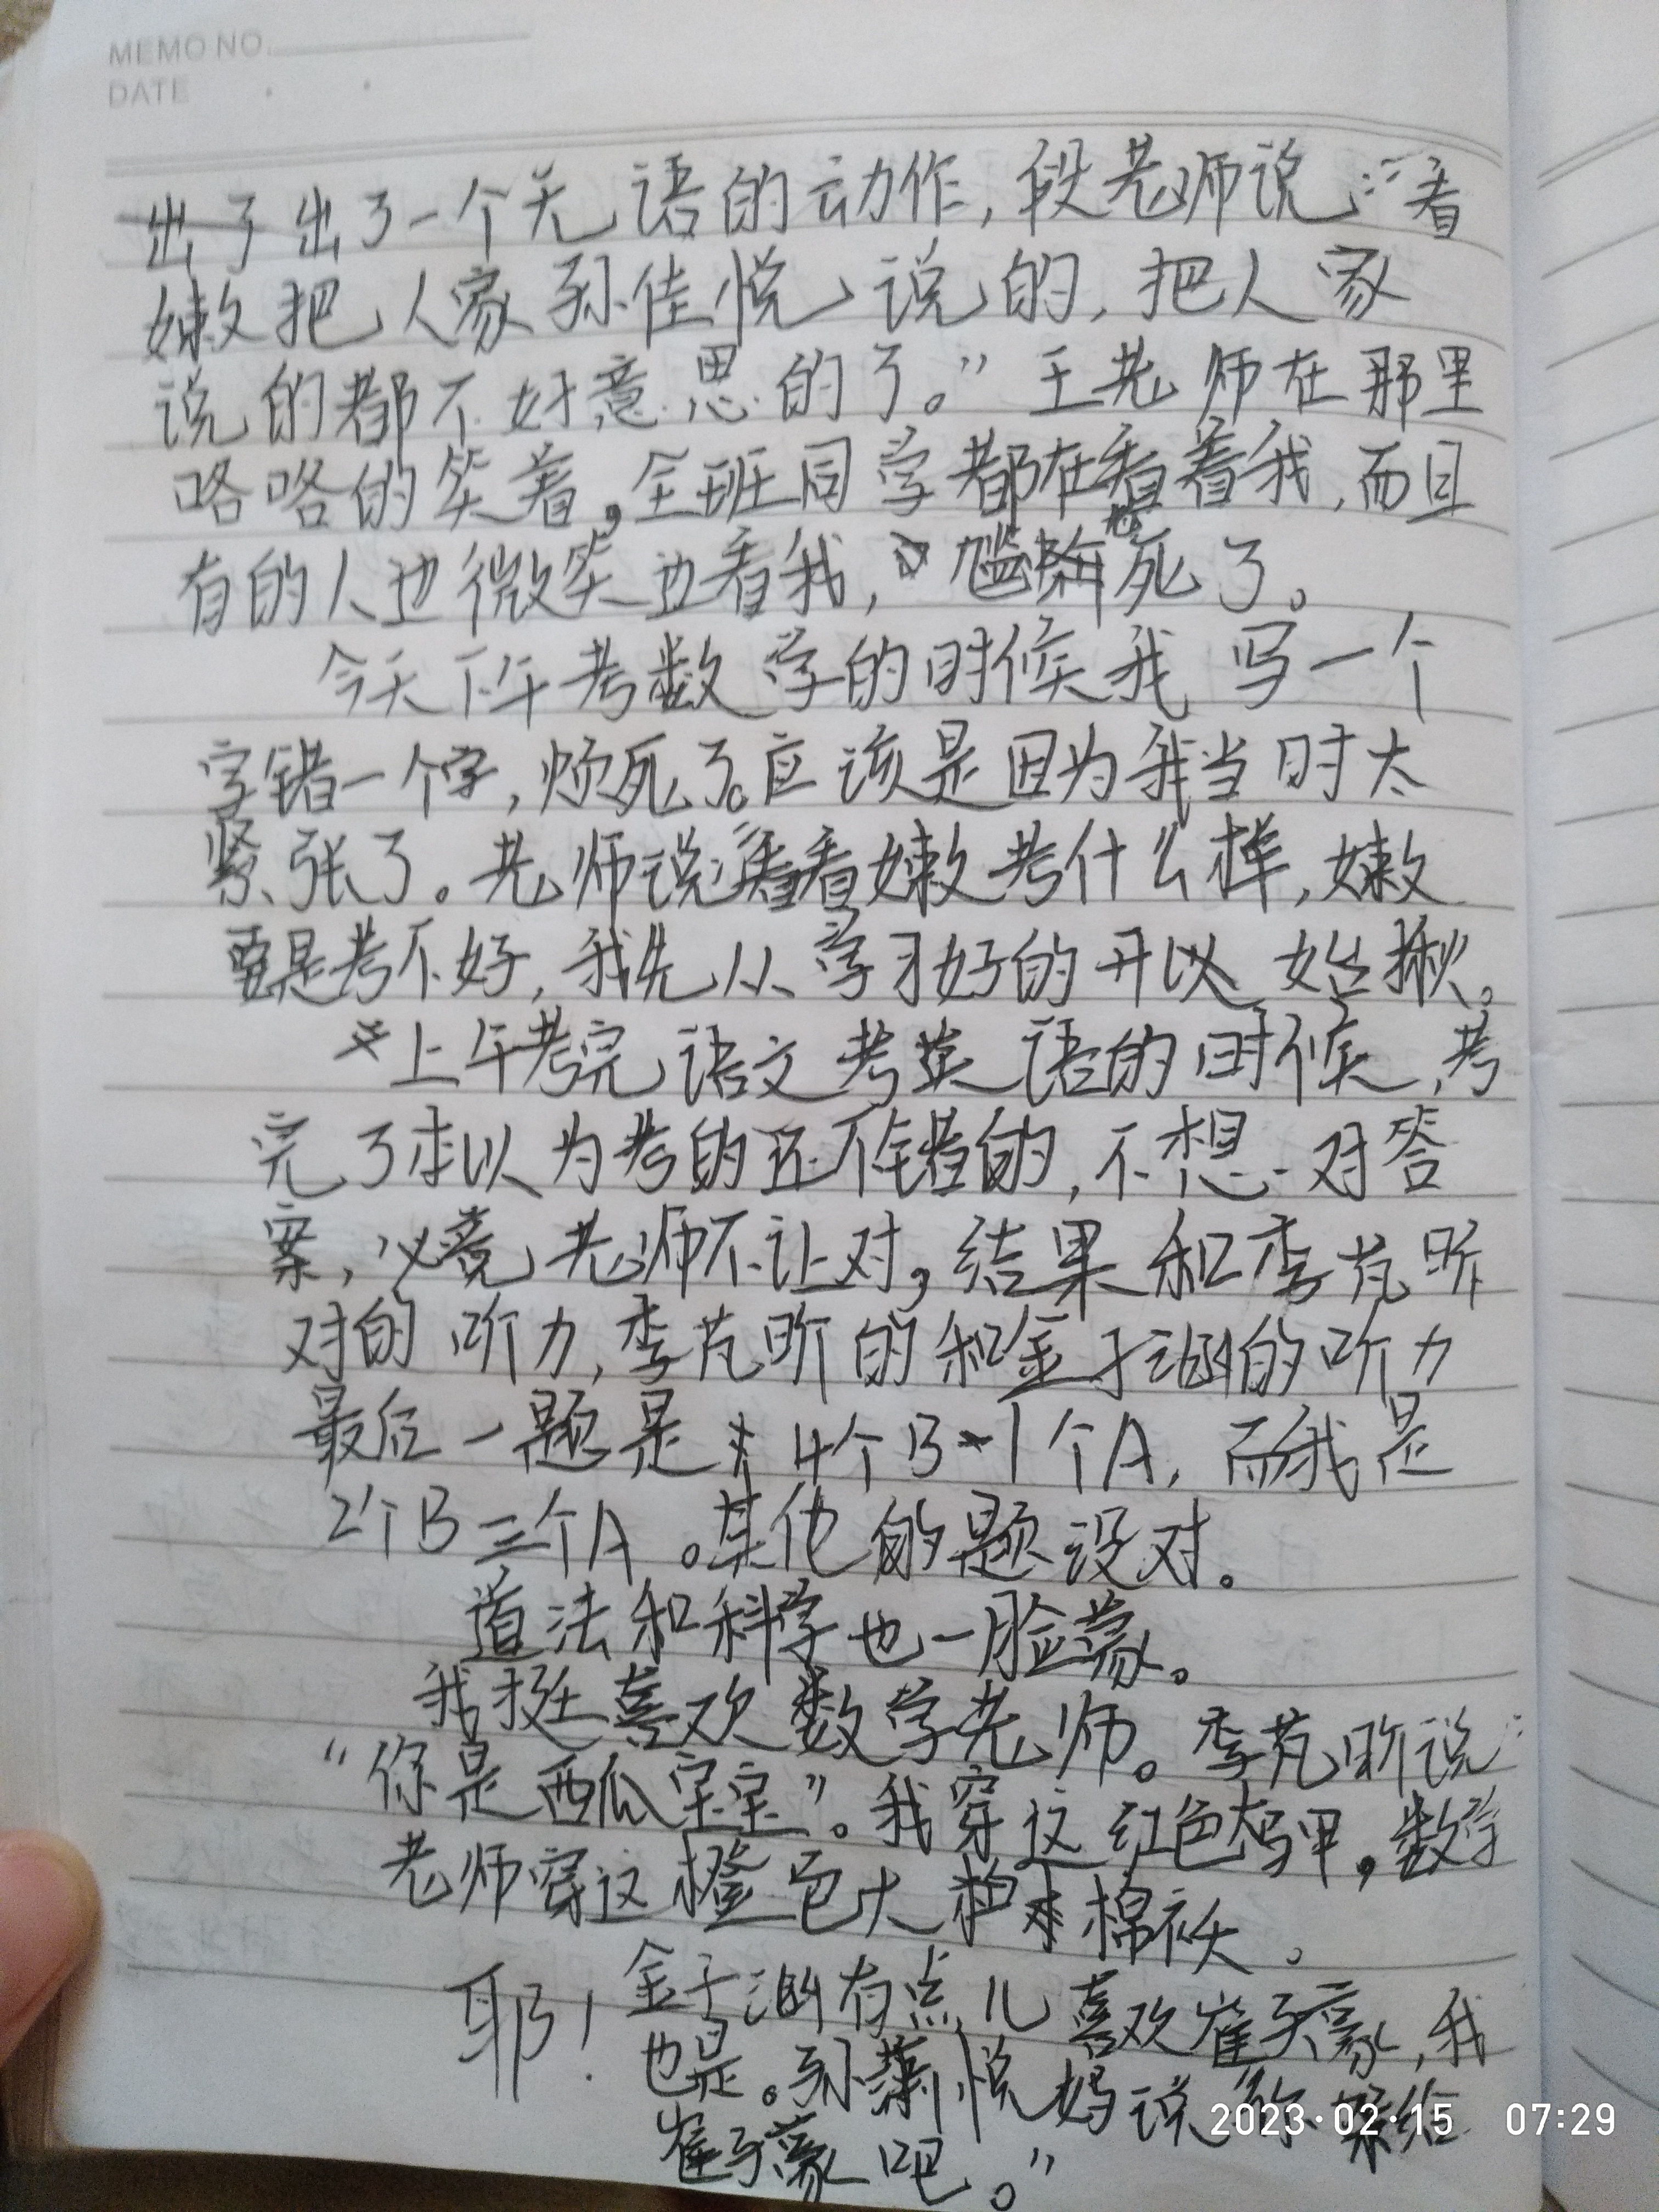 MEMO NO.
DATE
出了出了一个无语的动作,段老师说:“看
嫩把人家孙佳悦说的,把人家
说的都不好意思的了。”王老师在那里
咯咯的笑着,全班同学都在看着我,而且
有的人也微笑也看我,尴尬死了。
今天下午考数学的时候我写一个
字错一个字,烦死了。应该是因为我当时太
紧张了。老师说:“看看嫩考什么样,嫩
要是考不好,我先从学习好的开始揪。
上午考完语文考英语的时候,考
完了本以为考的还不错的,不想对答
案,必竟老师不让对,结果和李芃昕
对的听力,李芃昕的和金子涵的听力
最后一题是4个B 1个A,而我是
2个B三个A。其他的题没对。
道法和科学也一脸蒙。
我挺喜欢数学老师。李芃昕说:
“你是西瓜宝宝”。我穿这红色马甲,数学
老师穿这橙色大棉袄。
耶!金子涵有点儿喜欢崔子豪,我
也是。孙悦妈说“你嫁给
崔子豪吧。”
2023·02·15 07:29